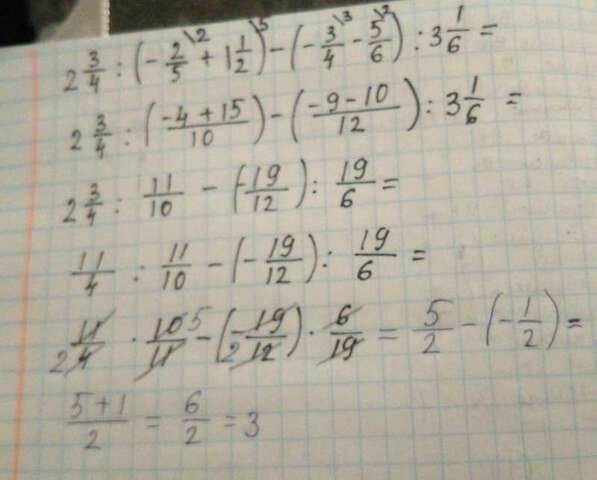 2 3/4 : (-2/5\2 + 1 1/2\5) - (-3/4\3 - 5/6\2) : 3 1/6 =
2 3/4 : (-4+15/10) - (-9-10/12) : 3 1/6 =
2 3/4 : 11/10 - (-19/12) : 19/6 =
11/4 : 11/10 - (-19/12) : 19/6 =
11/4 2 · 10/11 5 - (-19/12 2) · 6/19 = 5/2 - (-1/2) =
5+1/2 = 6/2 = 3